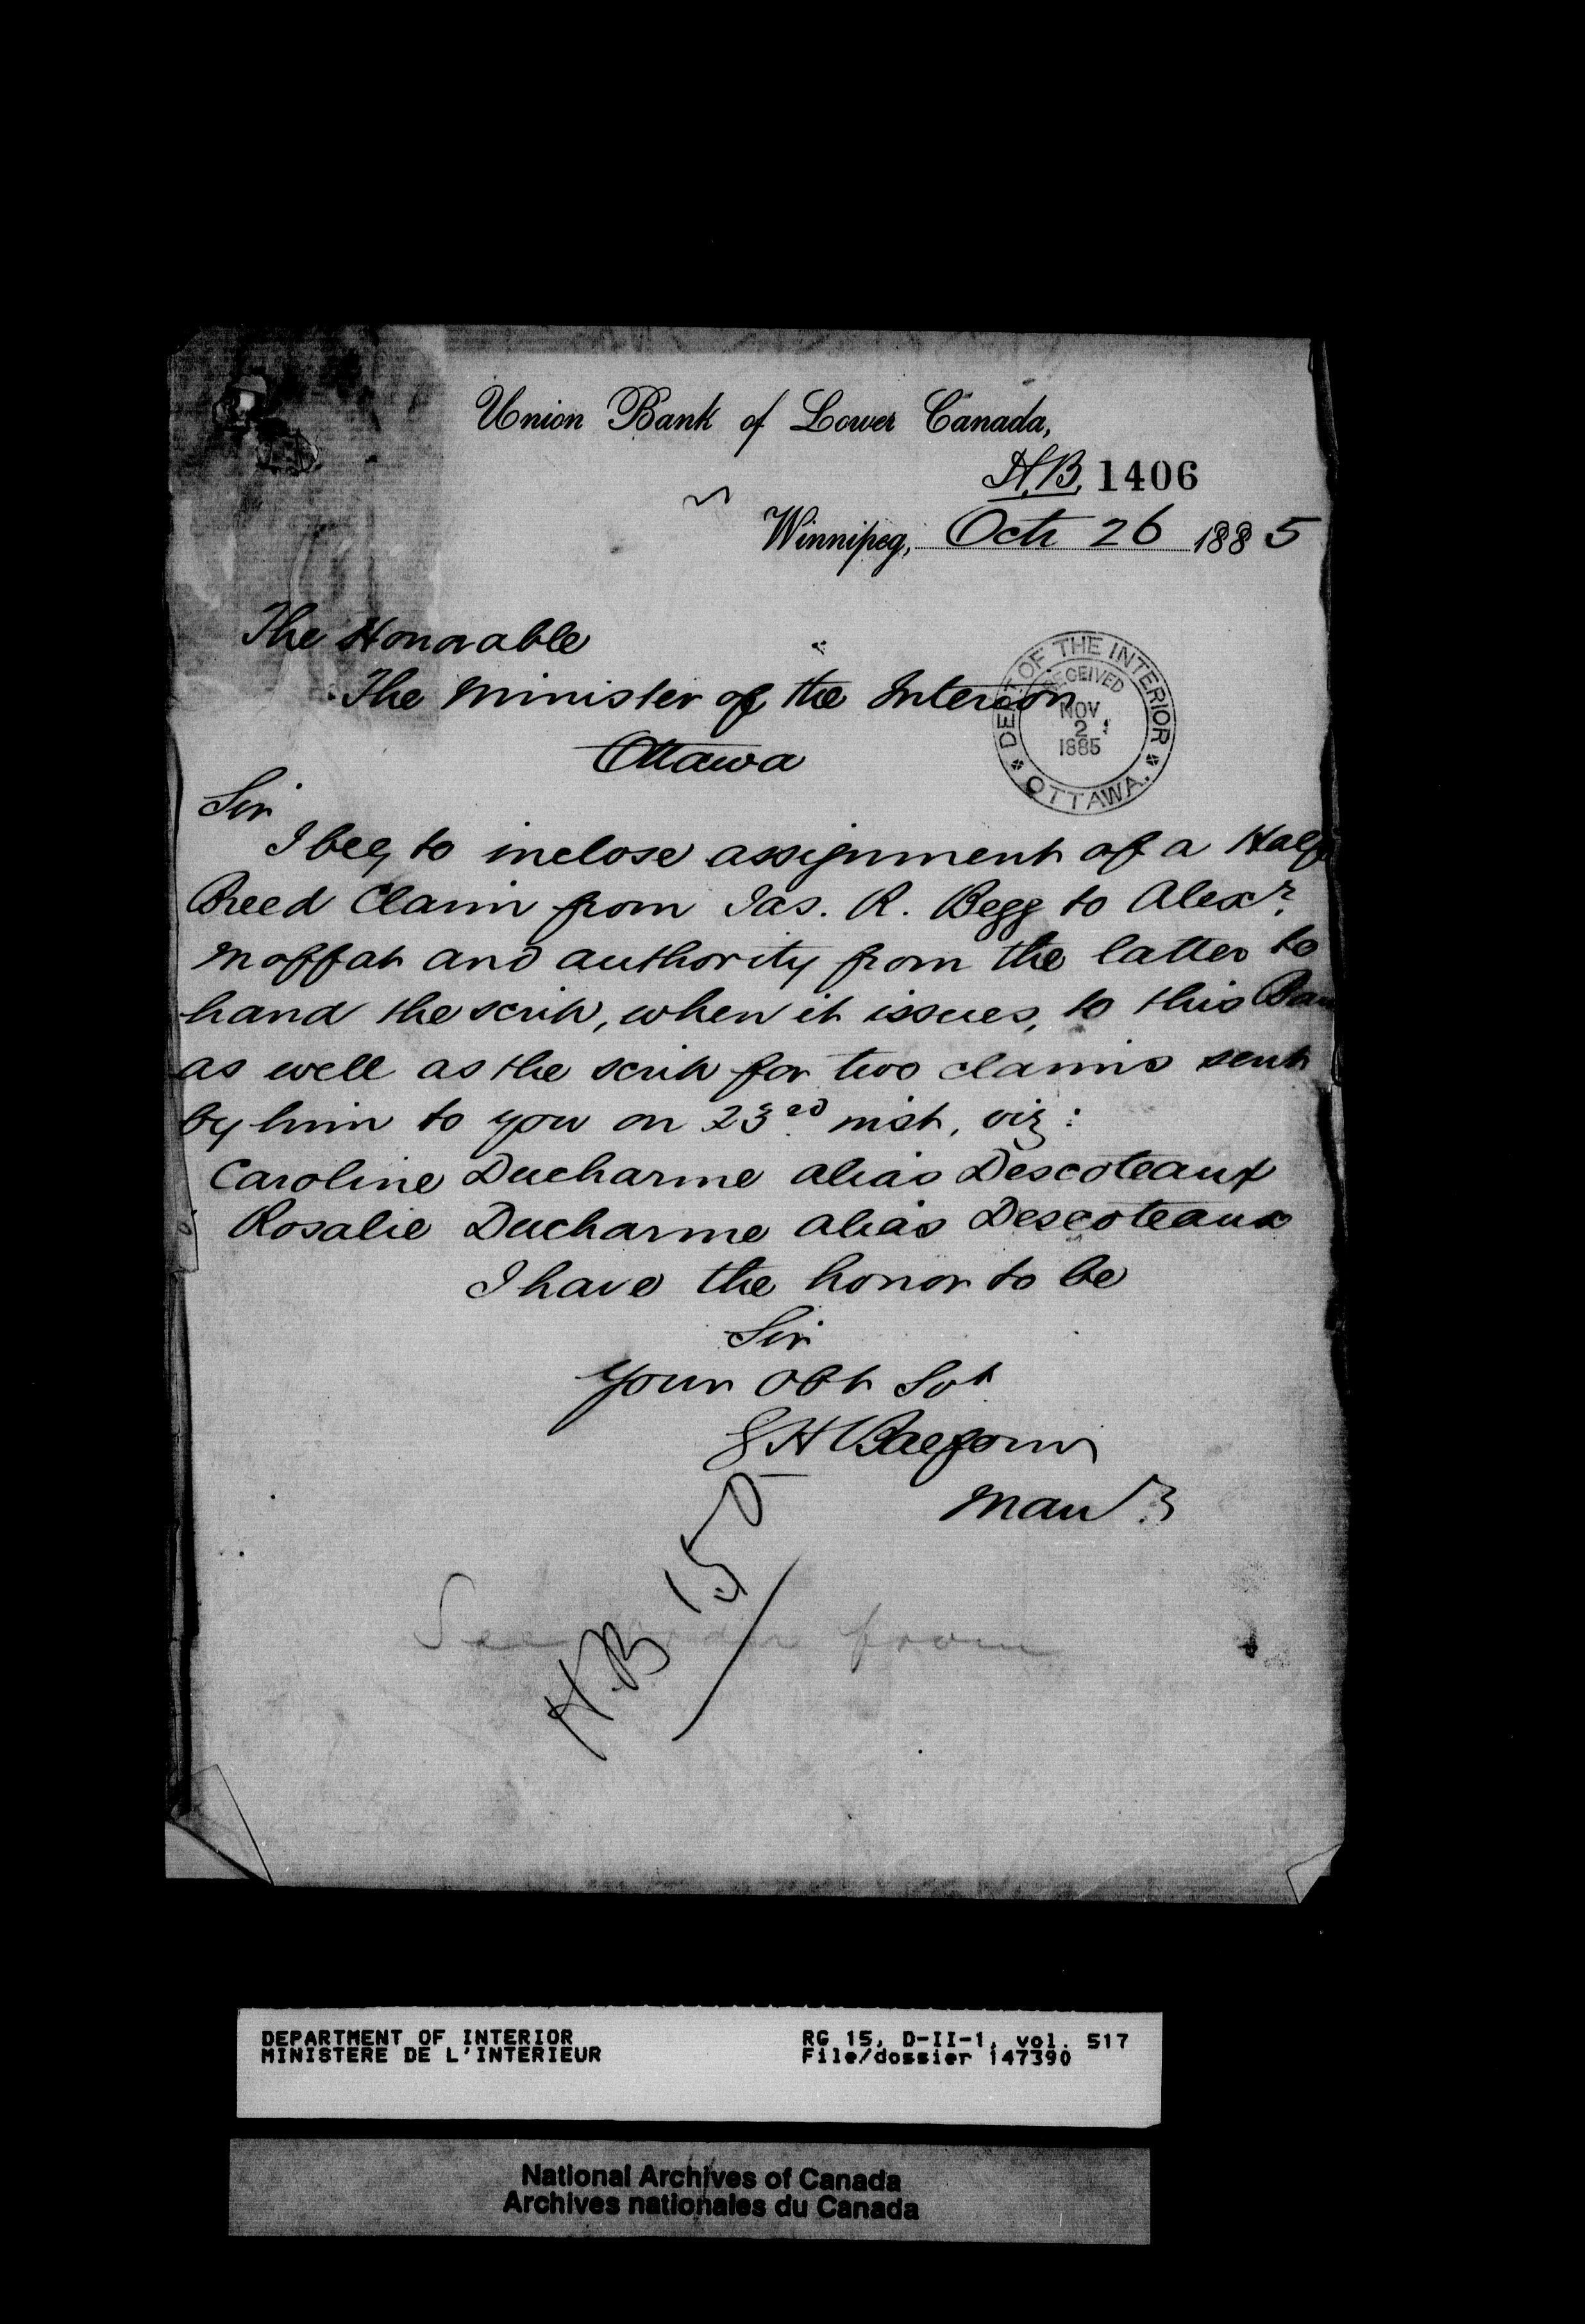 Union Bank of Lower Canada,
H.B. 1406
Winnipeg, Oct 26 1885
The Honorable
The Minister of the Interior
Ottawa
DEPT OF THE INTERIOR
RECEIVED
NOV
2
1885
OTTAWA.
Sir
I beg to inclose assignment of a Half
Breed Claim from Jas. R. Begg to Alexr.
Moffat and authority from the latter to
hand the scrip, when it issues, to this Ban
as well as the scrip for two claims sent
by him to you on 23rd inst, viz:
Caroline Ducharme alias Descoteaux
Rosalie Ducharme alias Descoteaux
I have the honor to be
Sir
Your Obt Svt
Manr
H.B 150
See from
DEPARTMENT OF INTERIOR
MINISTERE DE L'INTERIEUR
RG 15, D-II-1, vol. 517
File/dossier 147390
National Archives of Canada
Archives nationales du Canada